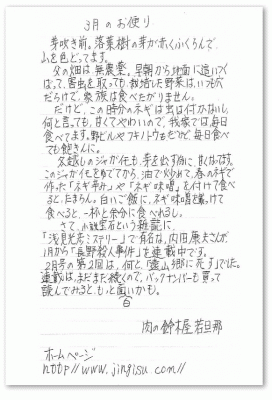 3月のお便り
芽吹き前。落葉樹の芽が赤くふくらんで、
山を色どってます。
父の畑は無農薬。早朝から地面に這いつく
ばって、害虫を取っても、栽培した野菜は、いつも穴
だらけで、家族は食べたがりません。
だけど、この時分のネギは虫は付かないし、
何と言っても、甘くてやわいので、我家では、毎日
食べてます。野ビルやフキノトウもだけど、毎日食べ
ても飽きんに。
冬越しのジャガイモも、芽を出す前に、甘くなってます。
このジャガイモをゆでてから、油で炒めて、春のネギで
作った「ネギ味噌」を付けて食べ
ると、たまらん。白いご飯に、ネギ味噌を載けて
食べると、一杯と余分に食べれるし。
さて、小説宝石という雑誌に、
「浅見光彦ミステリー」で有名な、内田康夫さんが
1月から「長野殺人事件」を連載中です。
2月号の第2回は、何と、「遠山郷に死す」でした。
連載は、まだまだ続くので、バックナンバーも買って
読んでみると、もっと面白いかも。
肉の鈴木屋 若旦那
ホームページ
http//www.jingisu.com//